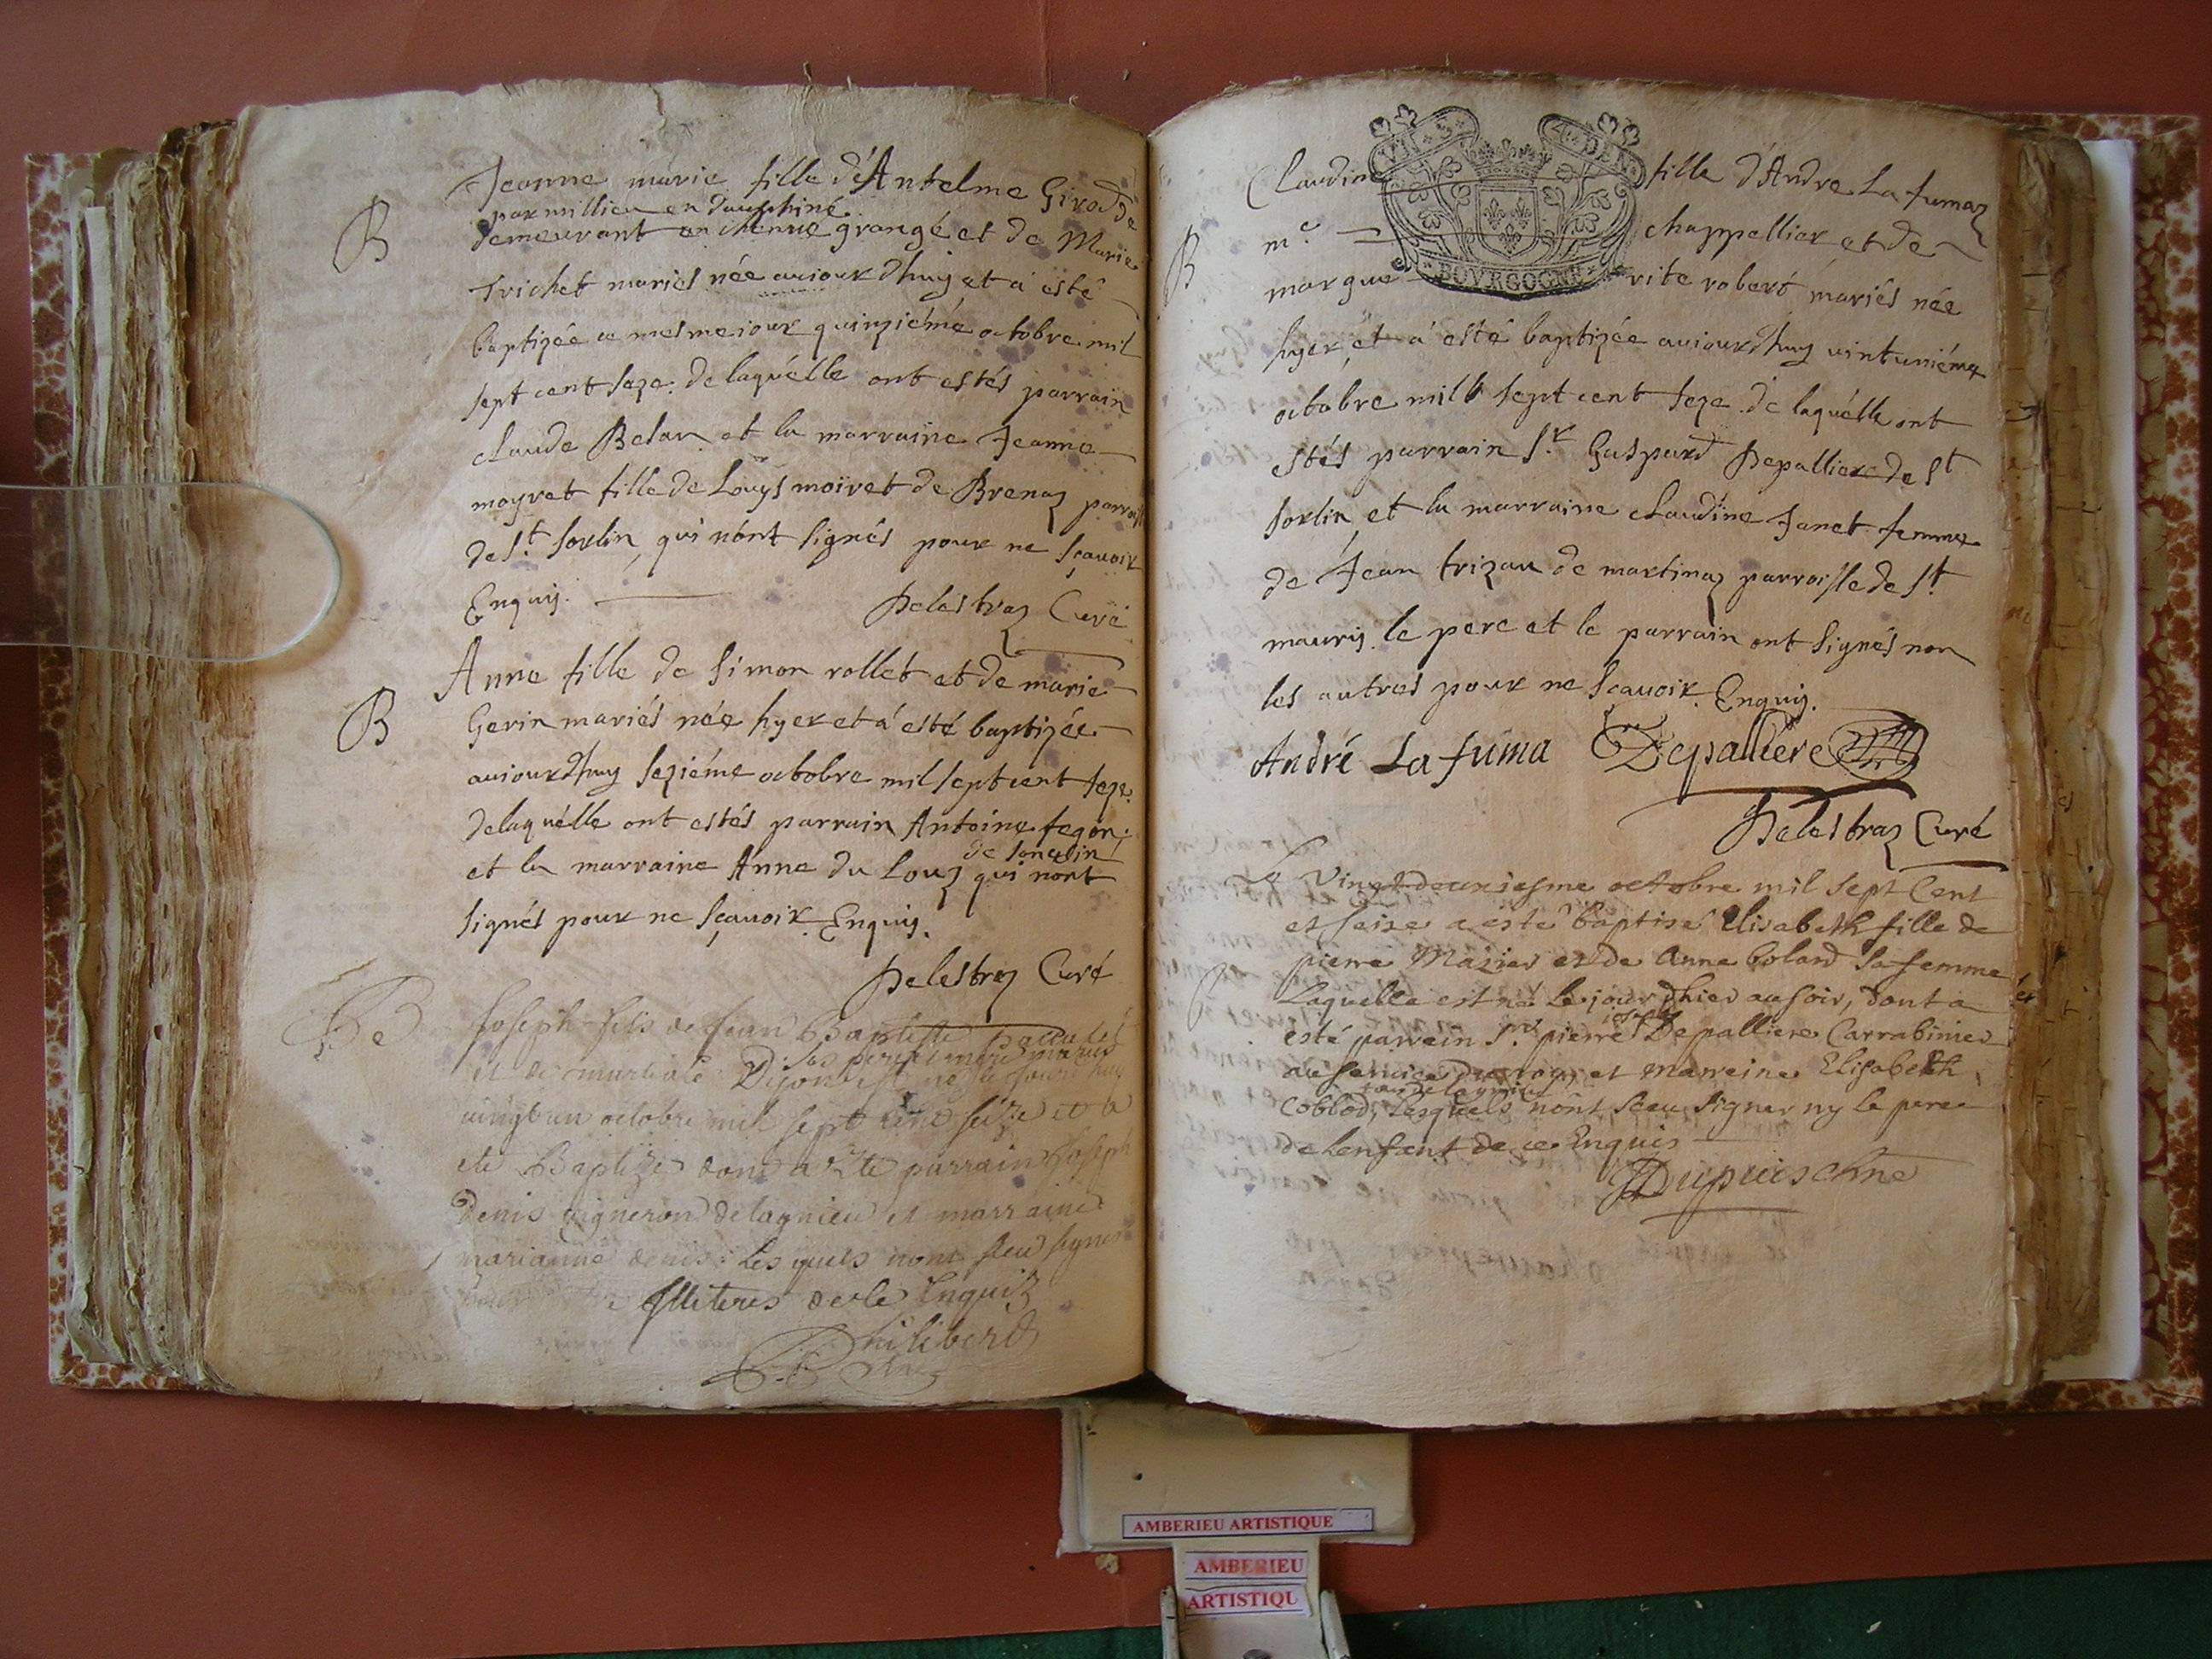 B
Jeanne marie fille d'Antelme Girod de
parmillieu en dauphiné
demeurant en chenue grange et de Marie
Trichet mariés née auiourdhuy et a esté
baptizée ce mesme iour quinziéme octobre mil
sept cent seze. de laquélle ont estés parrain
claude Belan et la marraine Jeanne
moyret fille de Louys moiret de Brenaz parroisse
de S.t Sorlin, qui nónt signés pour ne sçauoir
Enquis. Delestraz Curé
B
Anne fille de Simon rollet et de marie
Gerin mariés née hyer et a esté baptizée
auiourdhuy seziéme octobre mil sept cent seze.
delaquélle ont estés parrain Antoine fegon
et la marraine Anne du Louz qui nont
signés pour ne sçauoir. Enquis.
Delestraz Curé
Joseph fils de Jean Baptiste
et de
vingt un octobre mil sept cent seize et a
ete Baptizé dont a ete parrain Joseph
Denis vigneron de lagnieu et marraine
marianne denis. Lesquels nont sceu signer
Illiterés de ce Enquis
Philiberd
VII.S. 4.DEN.
BOVRGOGNE
B
Claudine fille d'Andre La fumaz
m.e chappellier et de
margue rite robert mariés née
hyer, et a esté baptizée auiourdhuy vintuniéme
octobre mille sept cent seze. de laquélle ont
estés parrain S.r Gaspard Depalliere de St
Sorlin, et la marraine claudine Janet femme
de Jean trizau de martinaz parroisse de St
mauris. le pere et le parrain ont signés non
les autres pour ne sçauoir. Enquis.
André La fuma Depalliere
Delestraz Curé
Le Vingtdeuxiesme octobre mil sept Cent
et seise a esté baptisé Elisabeth fille de
pierre Mazier et de Anne Golard sa femme
Laquelle est né le jour dhier au soir, dont a
esté parrein S.r pierre joseph Depalliere Carrabinier
au service du roy, et marreine Elisabeth
Coblod, Lesquels nont sceu signer ny le pere
de Lenfant de ce Enquis
Dupuis chne
AMBERIEU ARTISTIQUE
AMBERIEU
ARTISTIQU